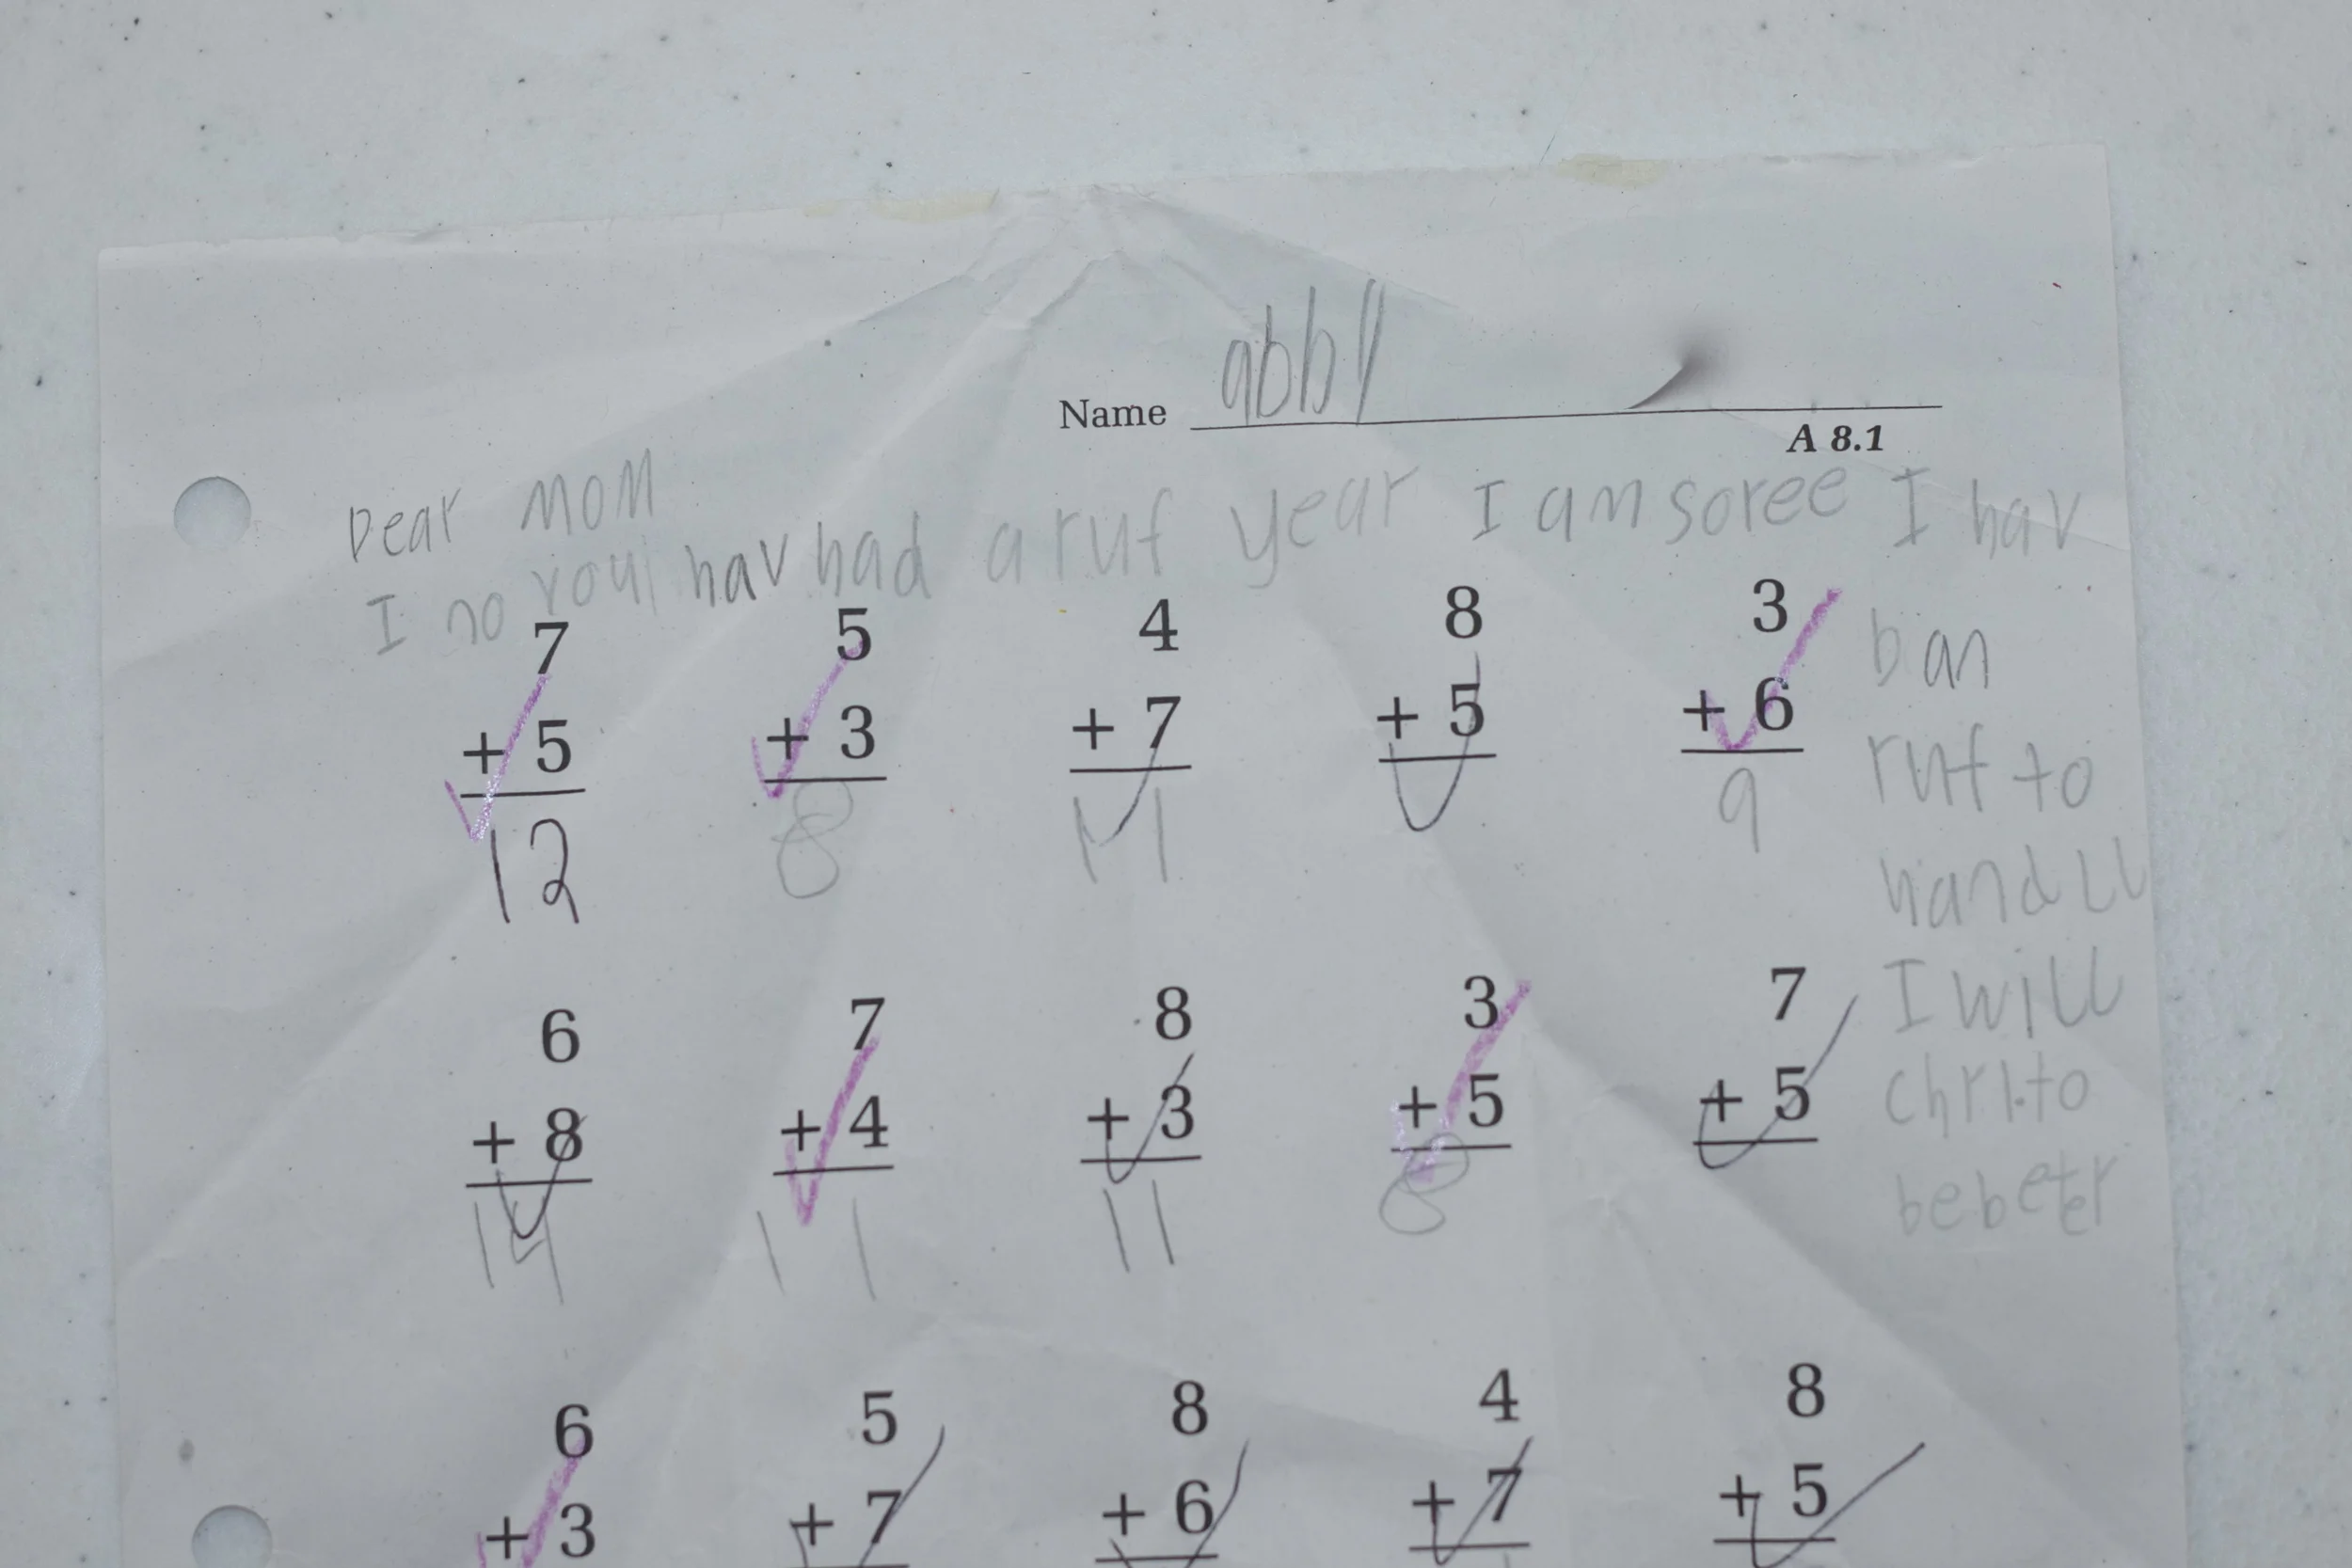 Name abby
A 8.1
Dear MOM
I no you hav had a ruf year I am soree I hav
ban
ruf to
handll
I will
chri to
be beter
7 5 4 8 3
+ 5 + 3 + 7 + 5 + 6
12 8 11 9
6 7 8 3 7
+ 8 + 4 + 3 + 5 + 5
14 11 11 8
6 5 8 4 8
+ 3 + 7 + 6 + 7 + 5